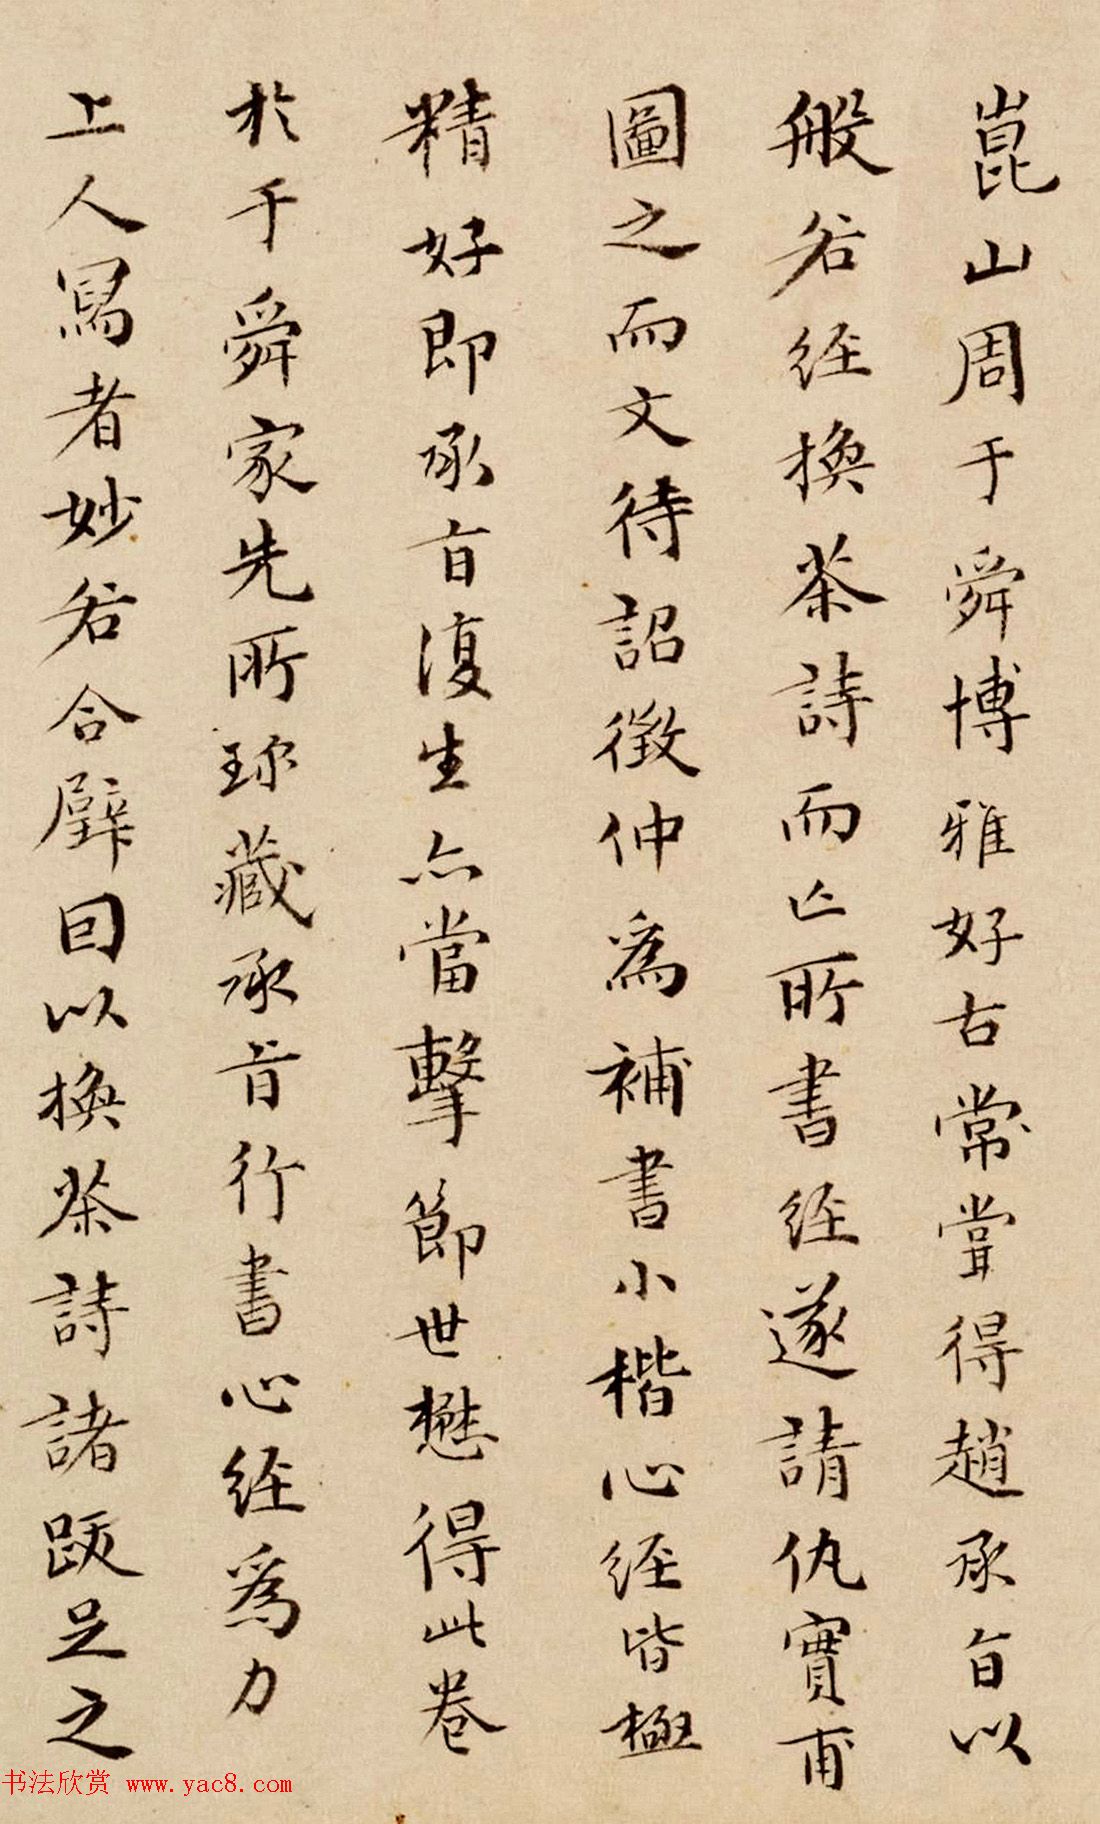 崑山周于舜博雅好古常甞得趙承旨以
般若経換茶詩而亡所書経遂請仇實甫
圖之而文待詔徵仲為補書小楷心経皆極
精好即承旨復生亦當擊節世懋得此卷
於于舜家先所珎藏承旨行書心経為力
上人寫者妙若合璧因以換茶詩諸跋足之
书法欣赏 www.yac8.com